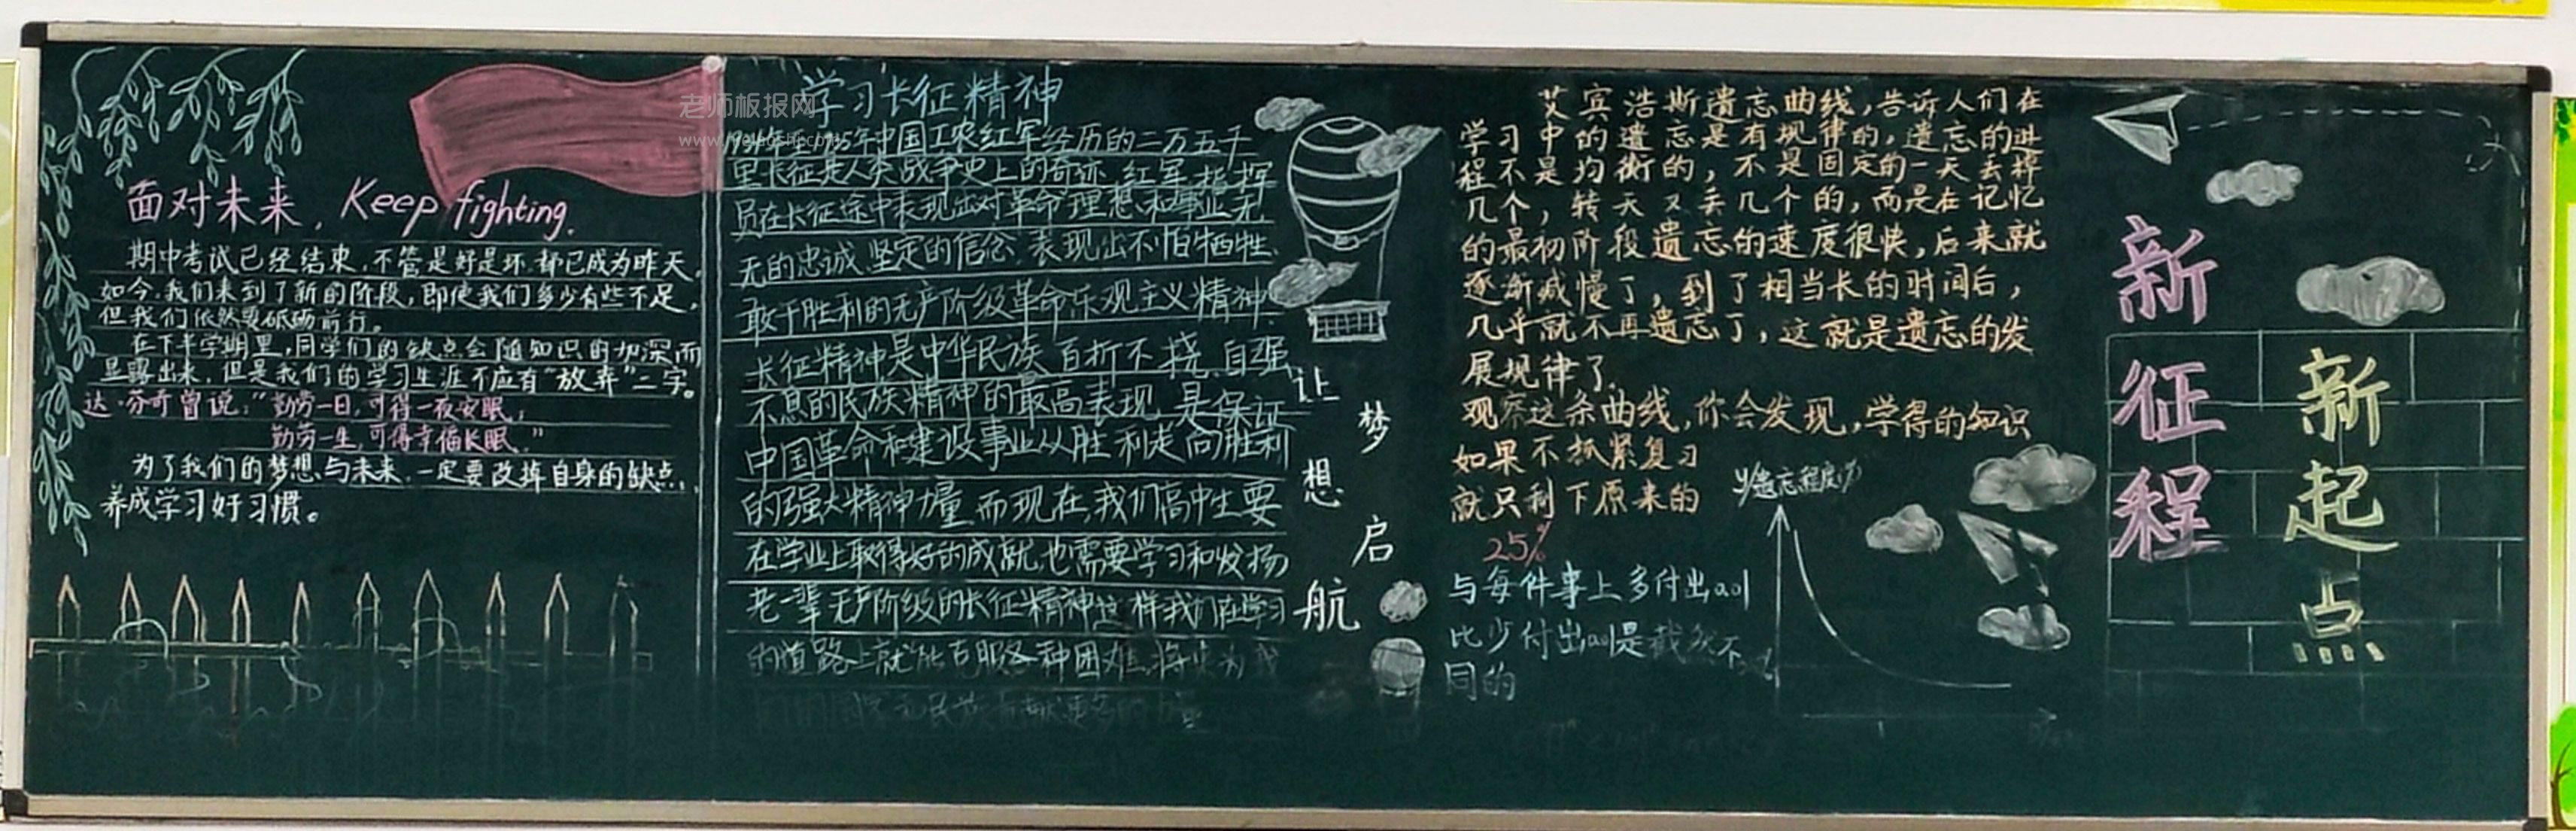 面对未来，Keep fighting.
期中考试已经结束，不管是好是坏，都已成为昨天。
如今，我们来到了新的阶段，即使我们多少有些不足，
但我们依然要砥砺前行。
在下半学期里，同学们的缺点会随知识的加深而
显露出来，但是我们的学习生涯不应有“放弃”二字。
达·芬奇曾说：“勤劳一日，可得一夜安眠；
勤劳一生，可得幸福长眠。”
为了我们的梦想与未来，一定要改掉自身的缺点，
养成学习好习惯。
老师板报网
学习长征精神
年中国工农红军经历的二万五千
里长征是人类战争史上的奇迹，红军指挥
员在长征途中表现出对革命理想和事业无
无的忠诚、坚定的信念，表现出不怕牺牲、
敢于胜利的无产阶级革命乐观主义精神。
长征精神是中华民族百折不挠、自强
不息的民族精神的最高表现，是保证
中国革命和建设事业从胜利走向胜利
的强大精神力量，而现在，我们高中生要
在学业上取得好的成就，也需要学习和发扬
老一辈无产阶级的长征精神这样我们在学习
的道路上就能克服各种困难，将来为我
让
梦
想
启
航
艾宾浩斯遗忘曲线，告诉人们在
学习中的遗忘是有规律的，遗忘的进
程不是均衡的，不是固定的一天丢掉
几个，转天又丢几个的，而是在记忆
的最初阶段遗忘的速度很快，后来就
逐渐减慢了，到了相当长的时间后，
几乎就不再遗忘了，这就是遗忘的发
展规律了
观察这条曲线，你会发现，学得的知识
如果不抓紧复习
就只剩下原来的
25%
y(遗忘程度)%
与每件事上多付出0.01
比少付出0.01是截然不
同的
新
征
程
新
起
点